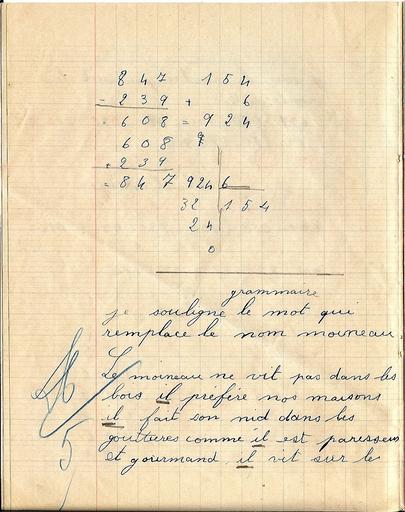 847 154
- 239 + 6
608 = 924
608
+ 239
= 847 924 6
32 154
24
0
grammaire
je souligne le mot qui
remplace le nom moineau
Le moineau ne vit pas dans les
bois il préfère nos maisons
il fait son nid dans les
gouttières comme il est paresseux
et gourmand il vit sur le
5